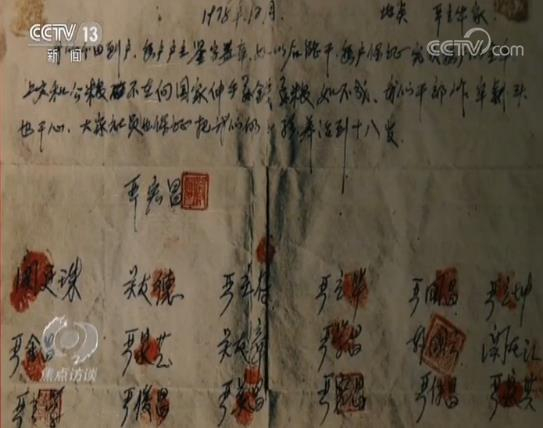 CCTV 13
新闻
CCTV.com
1978年12月 地点 严立华家
我们分田到户,每户户主签字盖章,如以后能干,每户保证完成每户的全年
上交和公粮 不在向国家伸手要钱要粮,如不成,我们干部作牢刹头
也干心,大家社员也保证把我们的小孩养活到十八岁.
严宏昌
关廷珠 关友德 严立符 严立华 严国昌 严立坤
严金昌 严家芝 关友章 严学昌 韩国云 关友江
严立学 严俊昌 严美昌 严宏昌 严付昌 严家其
焦点访谈